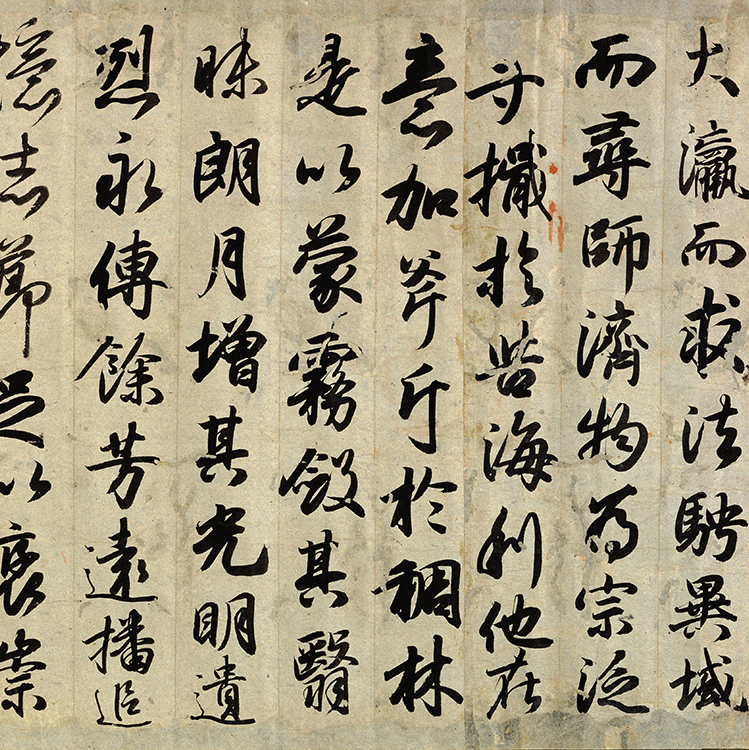 大瀛而求法騁異域
而尋師濟物爲宗泛
寸檝於苦海利他在
意加斧斤於稠林
是以蒙霧斂其翳
昧朗月增其光明遺
烈永傳餘芳遠播追
憶志節足以褒崇